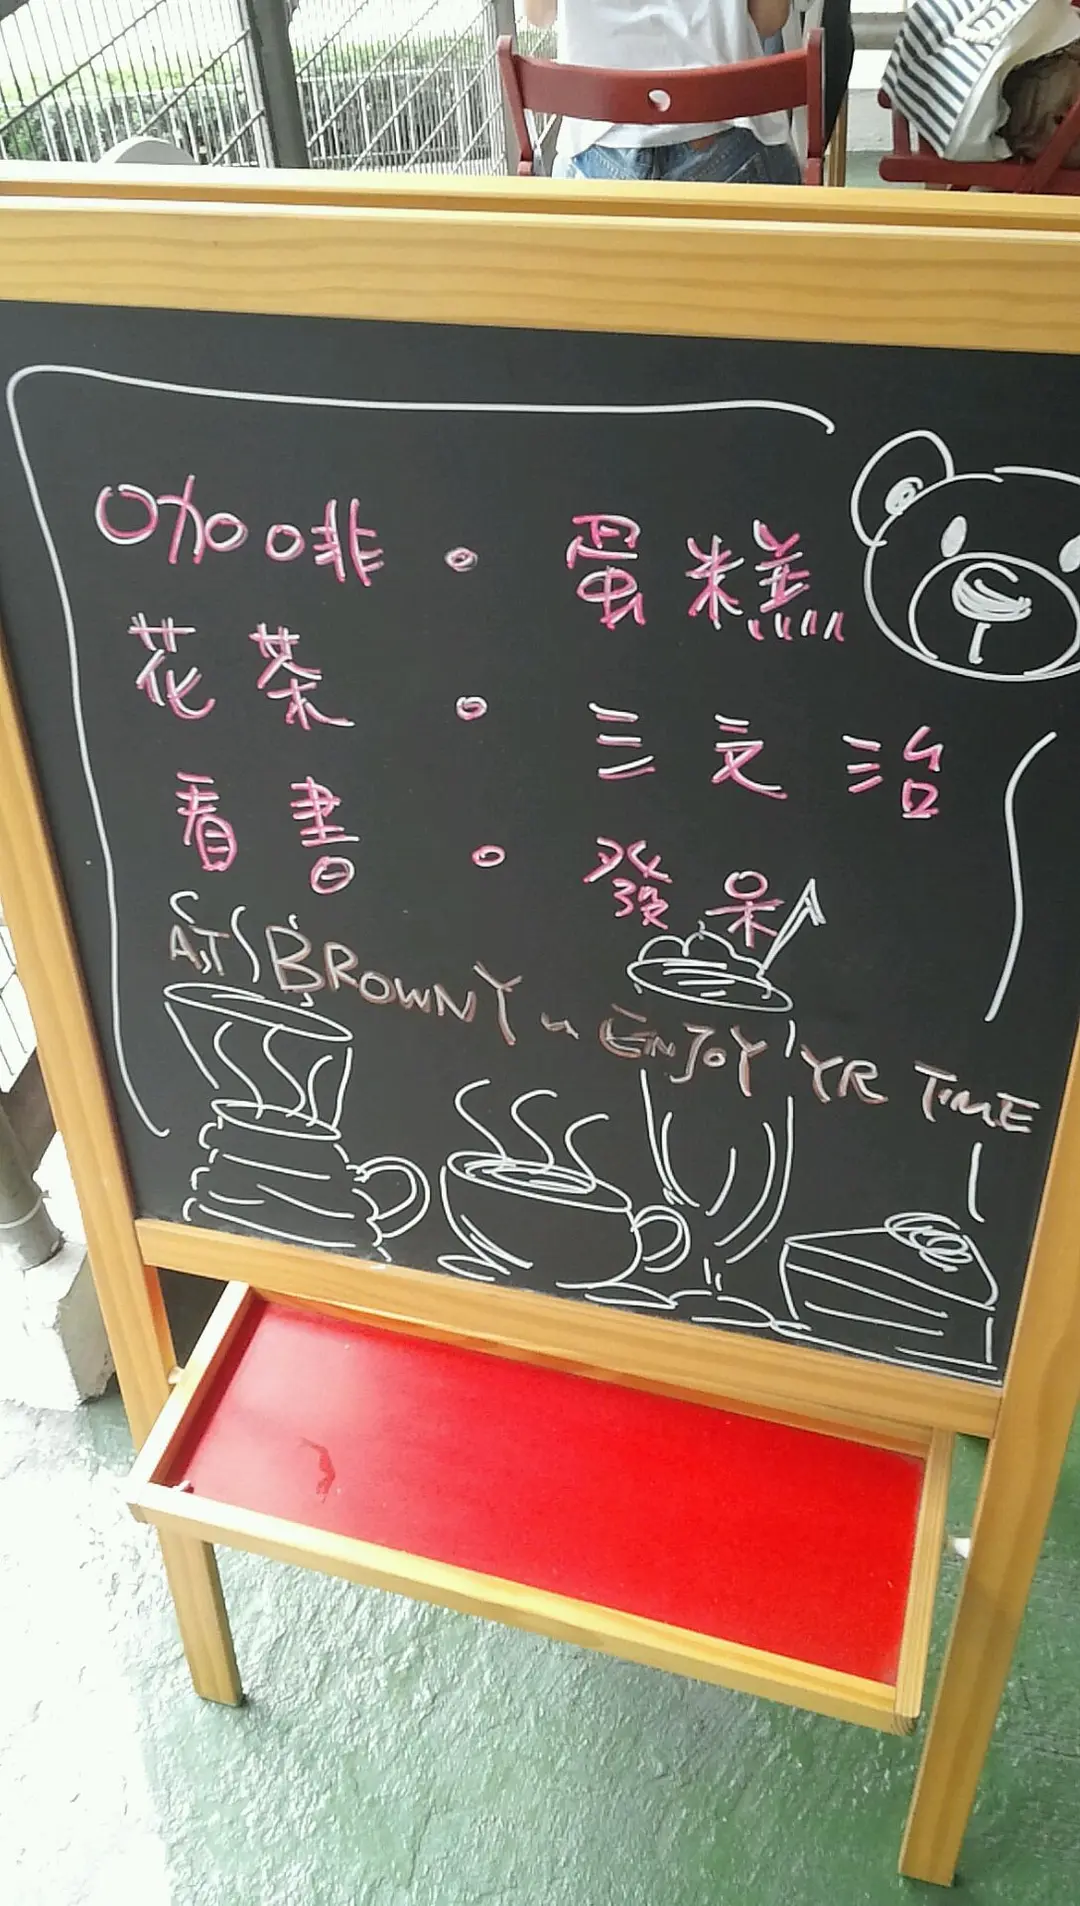 咖啡。蛋糕
花茶。三文治
看書。發呆
AT BROWNY in ENJOY YR TIME